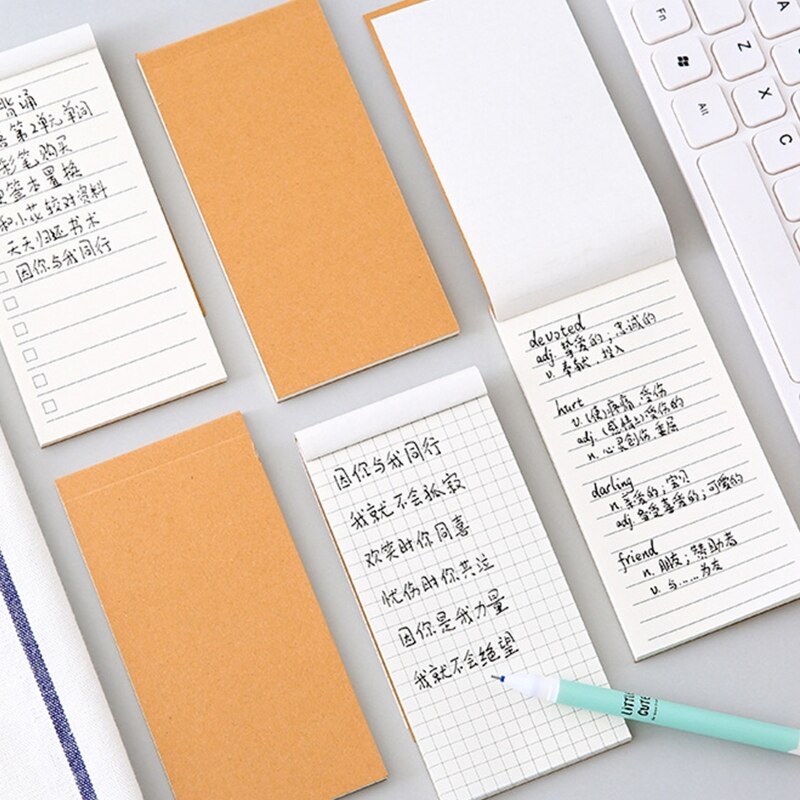 背诵
第2单元单词
彩笔购买
签本置换
和小花较对资料
天天归还书术
因你与我同行
因你与我同行
我就不会孤寂
欢笑时你同喜
忧伤时你共泣
因你是我力量
我就不会绝望
devoted
adj. 挚爱的；忠诚的
v. 奉献，投入
hurt
v. (使)疼痛，受伤
adj. (感情上)受伤的
n. 心灵创伤，委屈
darling
n. 亲爱的；宝贝
adj. 备受喜爱的；可爱的
friend
n. 朋友；赞助者
v. 与……为友
Fn
Alt
Z
X
A
C
LITTLE
CUTE